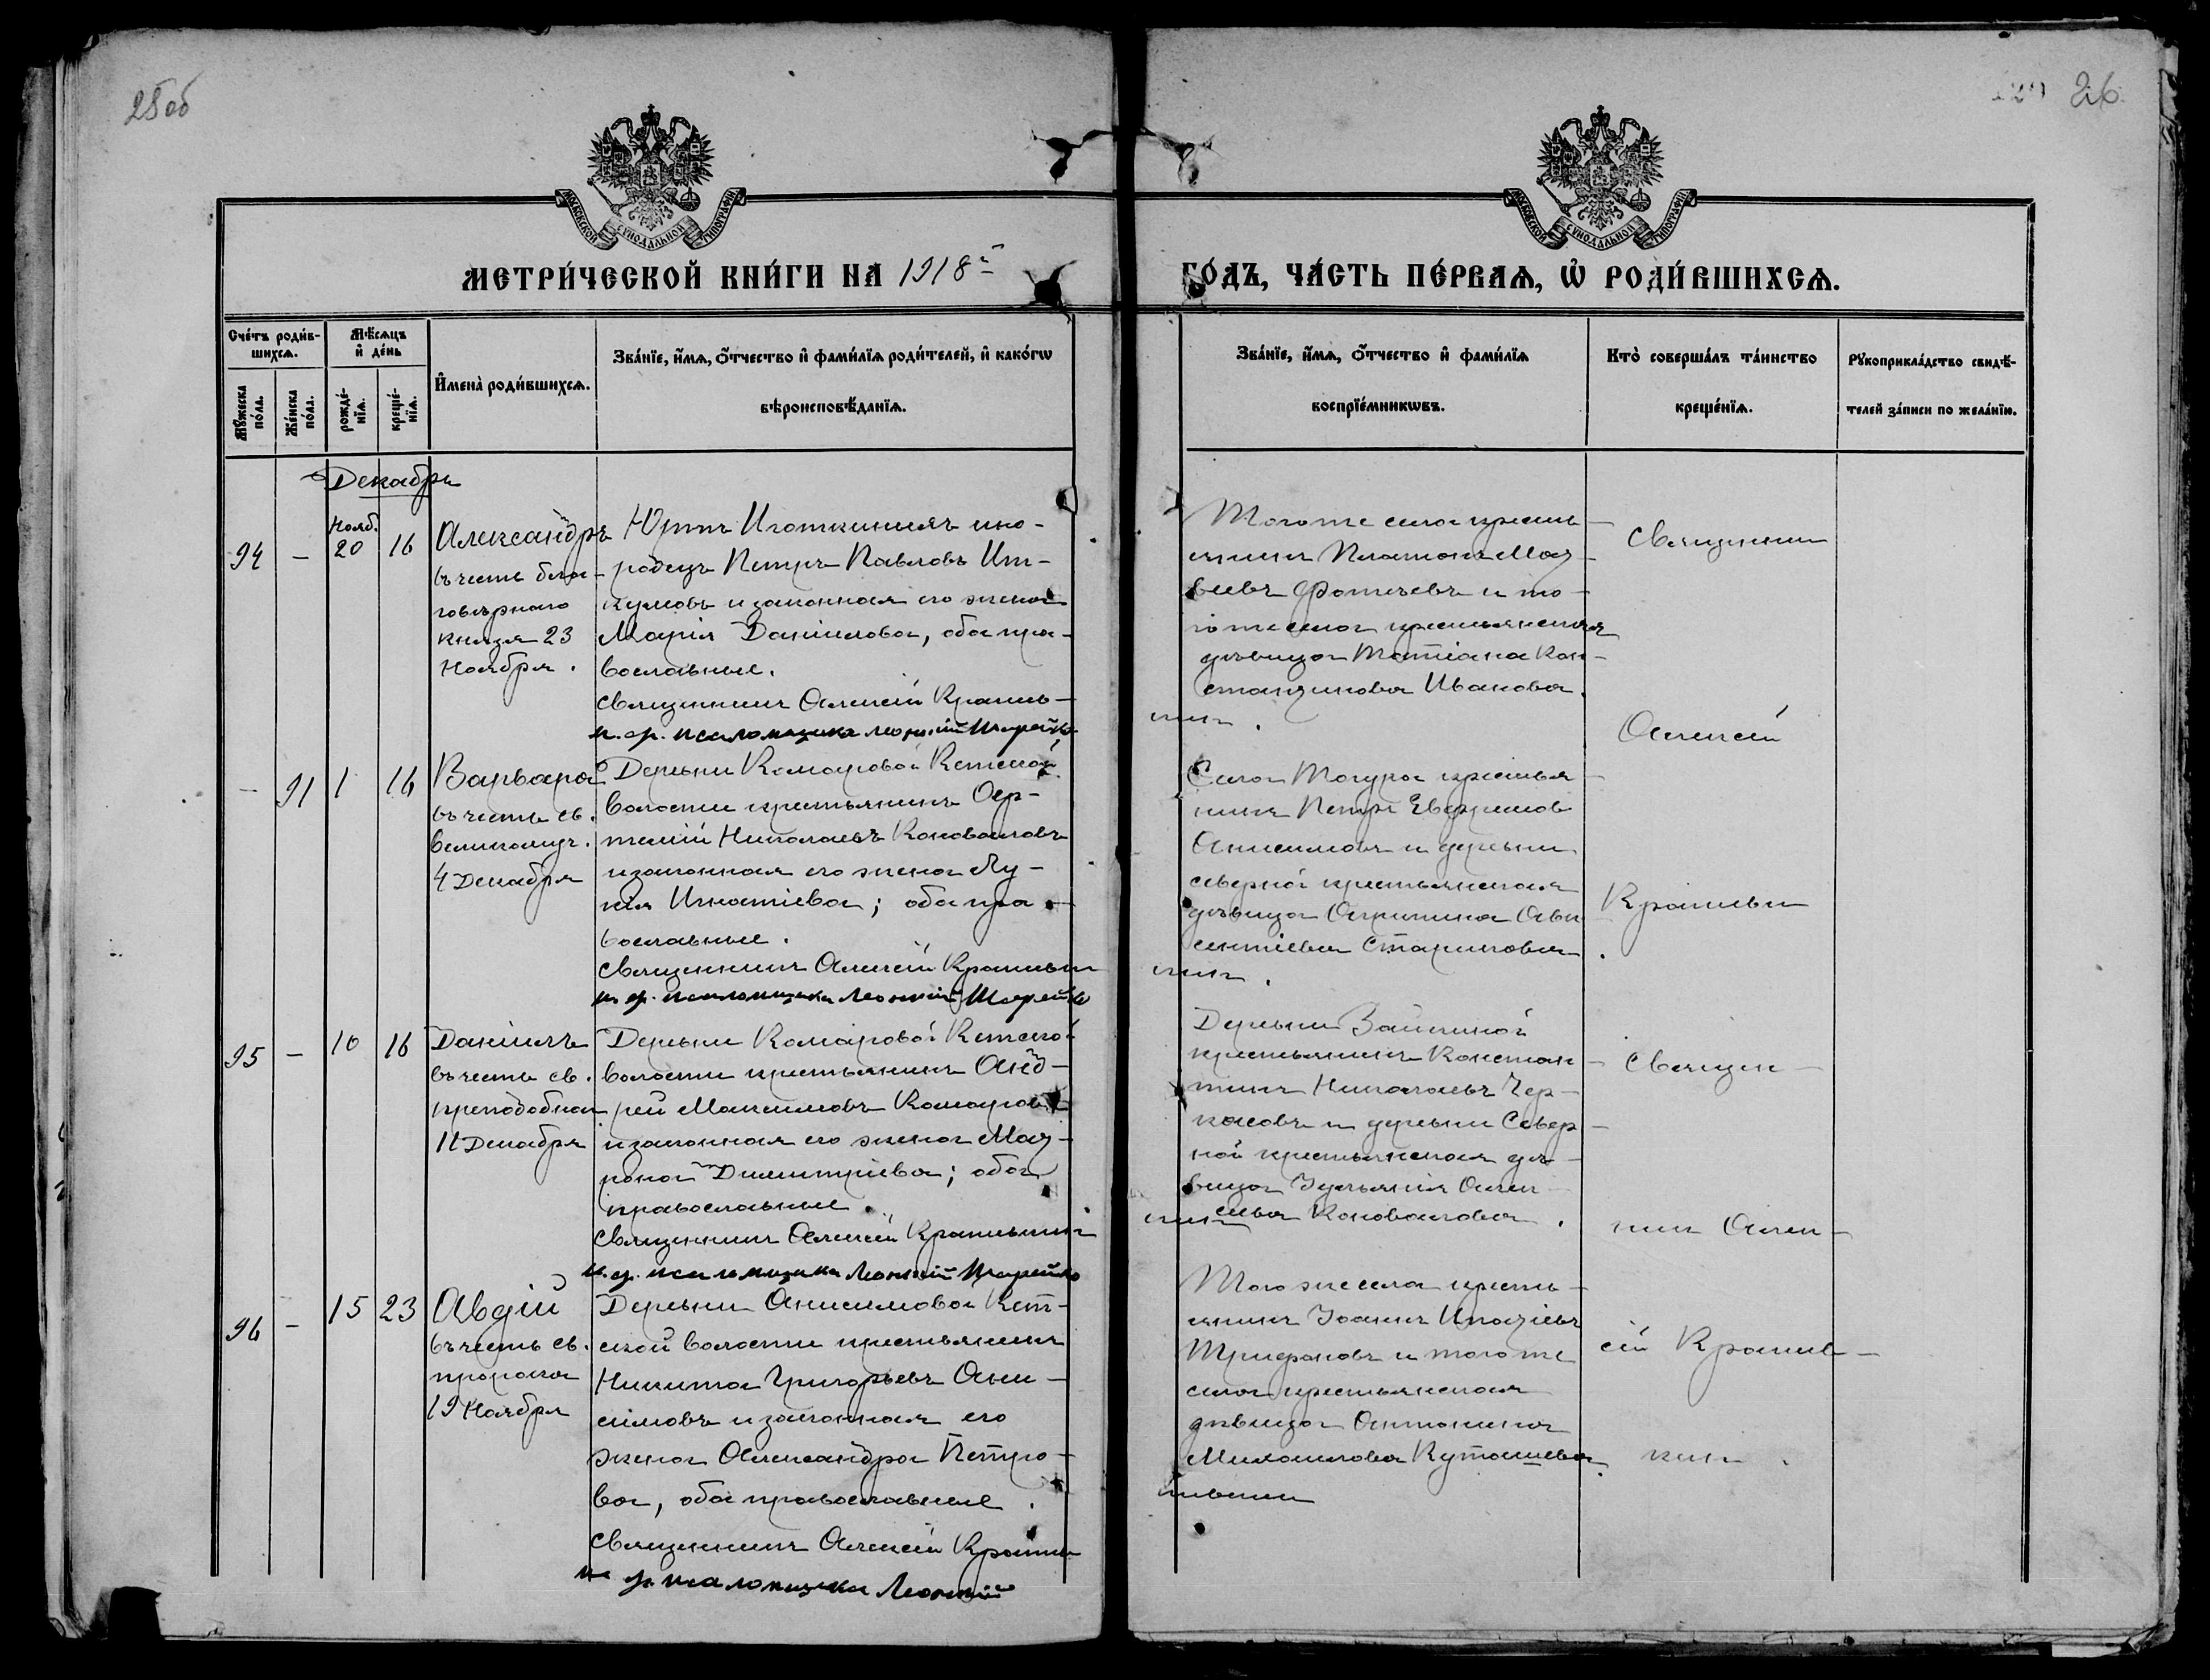 25об
26
МОСКОВСКОЙ СѴНОДАЛЬНОЙ ТИПОГРАФІИ
МОСКОВСКОЙ СѴНОДАЛЬНОЙ ТИПОГРАФІИ
МЕТРИ́ЧЕСКОЙ КНИ́ГИ НА 1918й
ГО́ДЪ, ЧА́СТЬ ПЕ́РВАѦ, Ѡ҆ РОДИ́ВШИХСѦ.
Сче́тъ роди́в-
шихсѧ.
Мѣ́сѧцъ
и҆ де́нь
Мꙋ́жеска
по́ла.
Же́нска
по́ла.
рожде́-
нїѧ.
креще́-
нїѧ.
И҆мена̀ роди́вшихсѧ.
Зва́нїе, и҆́мѧ, ѻ҆́тчество и҆ фами́лїѧ роди́телей, и҆ како́гѡ
вѣроисповѣ́данїѧ.
Зва́нїе, и҆́мѧ, ѻ҆́тчество и҆ фами́лїѧ
воспрїе́мникѡвъ.
Кто̀ соверша́лъ та́инство
креще́нїѧ.
Рꙋкоприкла́дство свидѣ́-
телей за́писи по жела́нїю.
Декабрь
94
–
Нояб.
20
16
Александръ
въ честь благо-
говѣрнаго
князя 23
Ноября.
Юртъ Иготкиныхъ ино-
родецъ Петръ Павловъ Ит-
кумовъ и законная его жена
Марія Даніилова, оба пра-
вославные.
Священникъ Алексій Крапив-
и. др. псаломщика Леонтій
Того же села кресть-
янинъ Платонъ Мат-
веевъ Фатеевъ и то-
го же села крестьянская
дѣвица Татіана Кон-
стантинова Иванова.
Священни
– 91 1 16
Варвара
въ честь св.
великомуч.
4 Декабря
Деревни Комаровой Кетской
волости крестьянинъ Ар-
темій Николаевъ Коноваловъ
и законная его жена Лу-
кія Игнатіева; оба пра-
вославные.
Священникъ Алексій Крапивин
и. др. псаломщика Леонтій
Села Тогура крестья-
нинъ Петръ Евфимов
Анисимовъ и деревни
северной крестьянская
дѣвица Агрипина Ави
сентіева Старикова
Алексій
Крапиви
95 – 10 16
Даніилъ
въ честь св.
преподобнаго
11 Декабря
Деревни Комаровой Кетской
волости крестьянинъ Анд-
рей Максимовъ Комаров
и законная его жена Мат-
рона Димитріева; оба
православные.
Священникъ Алексій Крапивинъ
и. др. псаломщика Леонтій
Деревни Зайкиной
крестьянинъ Констан-
тинъ Николаевъ Чер-
касовъ и деревни Север-
ной крестьянская дѣ-
вица Іуліанія Алек-
сѣева Коновалова.
Священ-
ник Алек-
96 – 15 23
Авдій
въ честь св.
пророка
19 Ноября
Деревни Анисимова Кет-
ской волости крестьянинъ
Никита Григорьевъ Ани-
симовъ и законная его
жена Александра Петро-
ва, оба православные.
Священникъ Алексій Крапи
и др псаломщика Леонтій
Того же села кресть-
янинъ Іоаннъ Ипатіевъ
Трифоновъ и того же
села крестьянская
дѣвица Антонина
Михаилова Куташева
сій Крапив-
инъ.